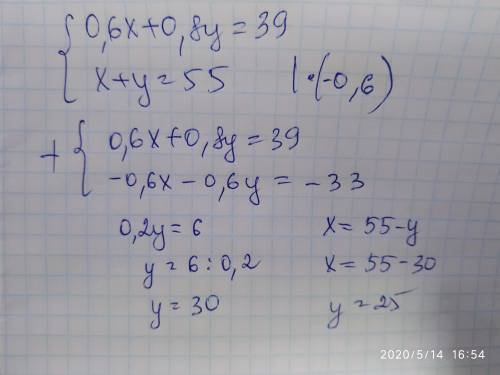 0,6x+0,8y=39
x+y=55 | •(-0,6)
+ { 0,6x+0,8y=39
-0,6x-0,6y=-33
0,2y=6 x=55-y
y=6:0,2 x=55-30
y=30 y=25
2020/5/14 16:54